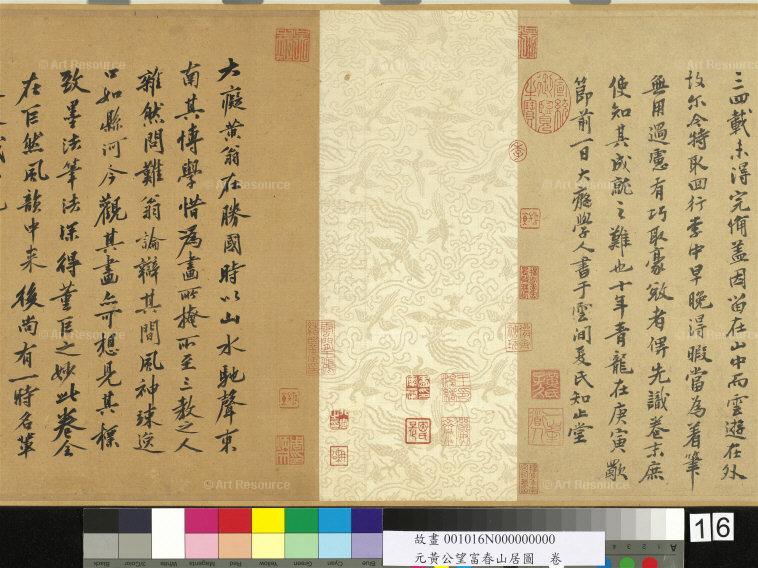 三四載未得完備蓋因留在山中而雲遊在外
故尓今特取回行李中早晚得暇當為着筆
無用過慮有巧取豪敚者俾先識卷末庶
使知其成就之難也十年青龍在庚寅歜
節前一日大癡學人書于雲間夏氏知止堂
大癡黃翁在勝國時以山水馳聲東
南其博學惜為畫所掩所至三教之人
雜然問難翁論辯其間風神竦逸
口如縣河今觀其畫亦可想見其標
致墨法筆法深得董巨之妙此卷全
在巨然風韻中来後尚有一時名輩
© Art Resource
© Art Resource
© Art Resource
© Art Resource
© Art Resource
© Art Resource
© Art Resource
© Art Resource
© Art Resource
故畫 001016N000000000
元黃公望富春山居圖 卷
16
Black
3/Color
White
Magenta
Red
Yellow
Green
Cyan
Blue